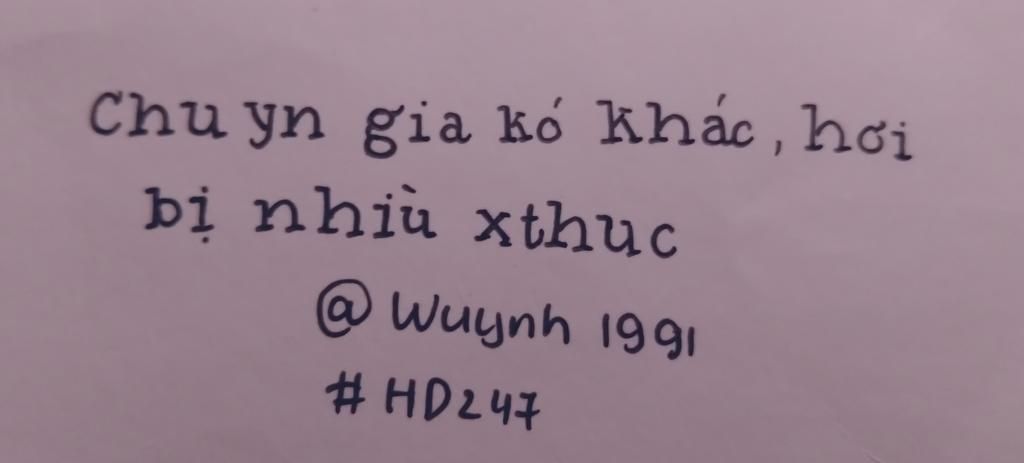 Chuyn gia kó khác, hơi
bị nhiù xthuc
@Wuynh 1991
#HD247